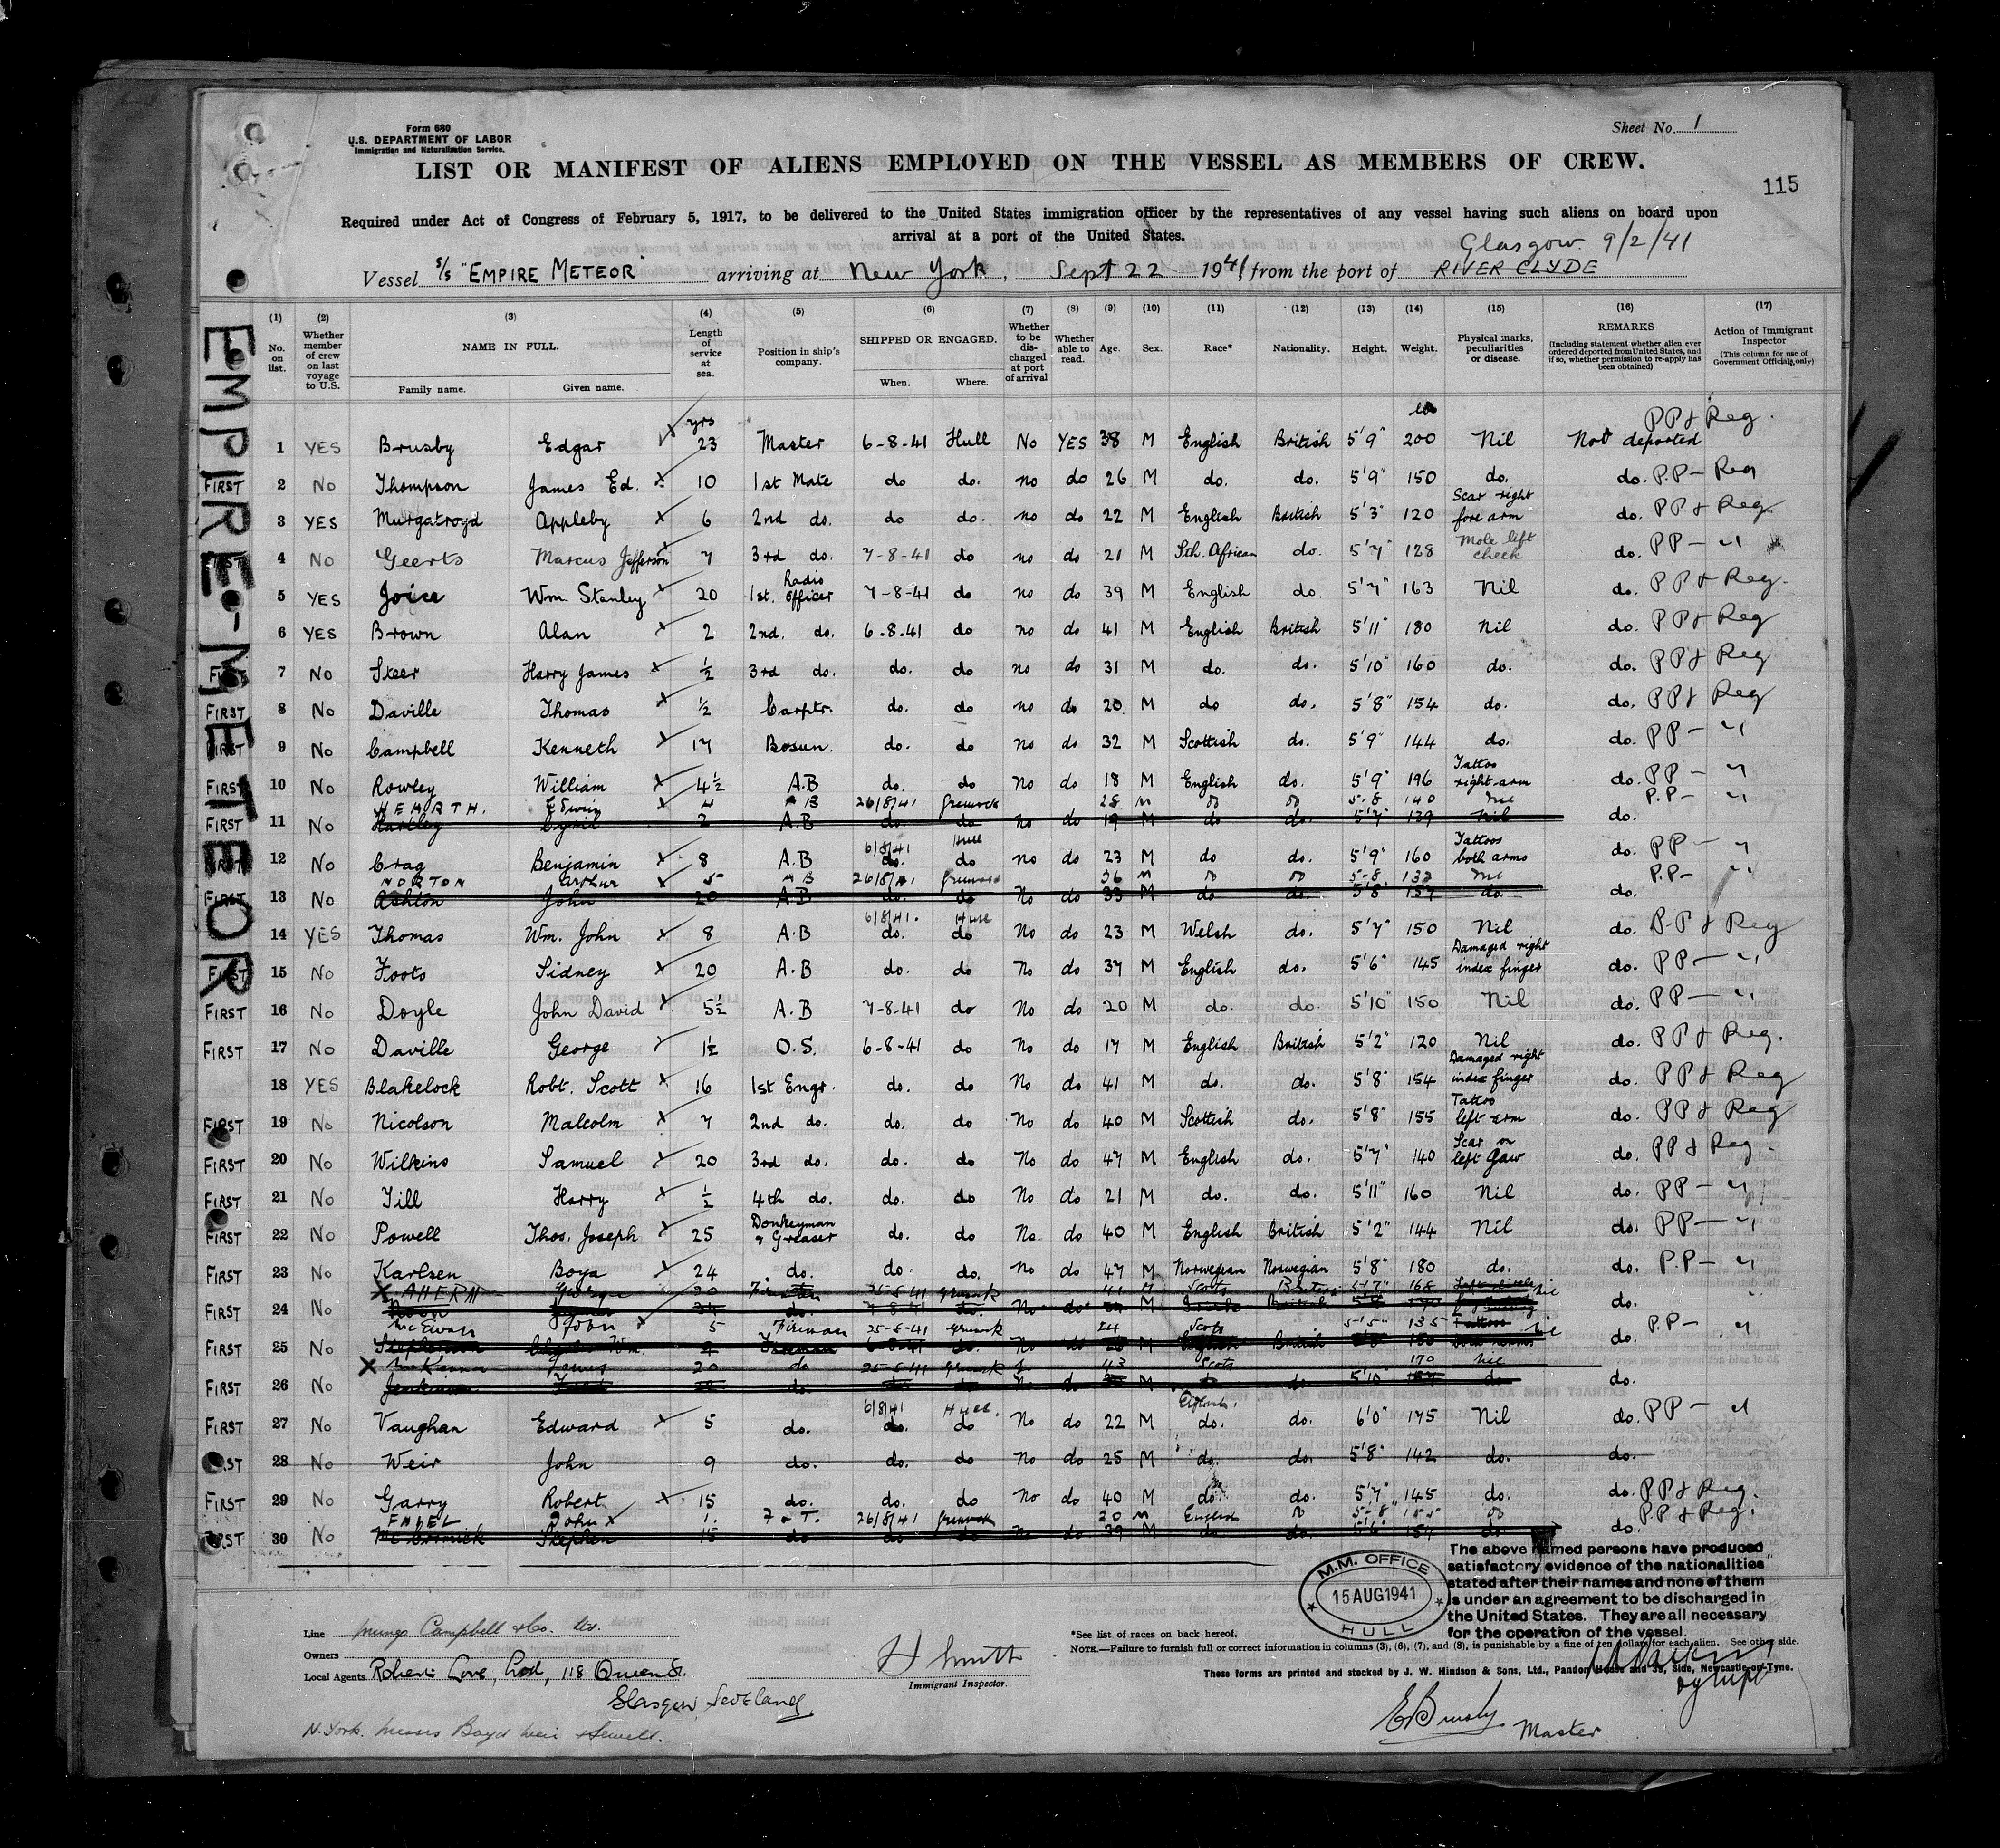 Form 680
U.S. DEPARTMENT OF LABOR
Immigration and Naturalization Service.
Sheet No. 1
LIST OR MANIFEST OF ALIENS EMPLOYED ON THE VESSEL AS MEMBERS OF CREW.
115
Required under Act of Congress of February 5, 1917, to be delivered to the United States immigration officer by the representatives of any vessel having such aliens on board upon
arrival at a port of the United States.
Glasgow 9/2/41
Vessel s/s "EMPIRE METEOR" arriving at New York, Sept 22 1941 from the port of RIVER CLYDE
EMPIRE-METEOR
(1) (2) (3) (4) (5) (6) (7) (8) (9) (10) (11) (12) (13) (14) (15) (16) (17)
No. on list. Whether member of crew on last voyage to U.S. NAME IN FULL. Family name. Given name. Length of service at sea. Position in ship's company. SHIPPED OR ENGAGED. When. Where. Whether to be discharged at port of arrival Whether able to read. Age. Sex. Race* Nationality. Height. Weight. Physical marks, peculiarities or disease. REMARKS (Including statement whether alien ever ordered deported from United States, and if so, whether permission to re-apply has been obtained) Action of Immigrant Inspector (This column for use of Government Officials only)
yrs PP & Reg.
1 YES Brusby Edgar 23 Master 6-8-41 Hull No YES 38 M English British 5'9" 200 Nil Not deported
FIRST 2 No Thompson James Ed. 10 1st Mate do do. no do 26 M do. do. 5'9" 150 do. do. P.P - Reg
3 YES Murgatroyd Appleby 6 2nd do. do do. no do 22 M English British 5'3" 120 Scar right fore arm do. PP & Reg.
FIRST 4 No Geerts Marcus Jefferson 7 3rd do. 7-8-41 do no do 21 M Sth. African do. 5'7" 128 Mole left cheek do. PP - "
5 YES Joice Wm. Stanley 20 1st. Radio Officer 7-8-41 do no do 39 M English do. 5'7" 163 Nil do. PP & Reg.
6 YES Brown Alan 2 2nd. do. 6-8-41 do no do 41 M English British 5'11" 180 Nil do. PP & Reg
FIRST 7 No Steer Harry James ½ 3rd do. do. do no do 31 M do. do. 5'10" 160 do. do. PP & Reg
FIRST 8 No Daville Thomas ½ Carptr. do. do no do 20 M do do. 5'8" 154 do. do. PP & Reg
FIRST 9 No Campbell Kenneth 17 Bosun. do. do no do 32 M Scottish do. 5'9" 144 do. do. PP - "
FIRST 10 No Rowley William 4½ A.B do. do No do 18 M English do. 5'9" 196 Tattoo right arm do. PP - "
HEARTH. Edwin 4 AB 26/8/41 Greenock 28 M do do 5-8 140 Nil P.P - "
FIRST 11 No Hartley Cyril 2 A.B do. do no do 19 M do do. 5'7" 139 Nil do.
6/8/41 Hull
FIRST 12 No Crag Benjamin 8 A.B do. do no do 23 M do do. 5'9" 160 Tattoos both arms do. PP - "
NORTON Arthur 5 AB 26/8/41 Greenock 36 M do do 5-8 132 Nil P.P - "
FIRST 13 No Ashton John 20 A.B do. do No do 33 M do do. 5'8" 157 do. do.
6/8/41. Hull
14 YES Thomas Wm. John 8 A.B do. do No do 23 M Welsh do. 5'7" 150 Nil do. P.P & Reg
FIRST 15 No Foots Sidney 20 A.B do. do No do 37 M English do. 5'6" 145 Damaged right index finger do. PP - "
FIRST 16 No Doyle John David 5½ A.B 7-8-41 do No do 20 M do. do. 5'10" 150 Nil do. PP - "
FIRST 17 No Daville George 1½ O.S. 6-8-41 do No do 17 M English British 5'2" 120 Nil do. PP & Reg.
18 YES Blakelock Robt. Scott 16 1st Engr. do. do No do 41 M do. do. 5'8" 154 Damaged right index finger do. PP & Reg
FIRST 19 No Nicolson Malcolm 7 2nd do. do. do No do 40 M Scottish do. 5'8" 155 Tattoo left arm do. PP & Reg
FIRST 20 No Wilkins Samuel 20 3rd do. do. do No do 47 M English do. 5'7" 140 Scar on left Jaw do. PP & Reg.
FIRST 21 No Till Harry ½ 4th do. do. do No do 21 M do. do. 5'11" 160 Nil do. PP - "
FIRST 22 No Powell Thos. Joseph 25 Donkeyman & Greaser do. do No do 40 M English British 5'2" 144 Nil do. PP - "
FIRST 23 No Karlsen Boya 24 do. do. do. No do 47 M Norwegian Norwegian 5'8" 180 do. do. P.P - "
X AHERN George 30 Fireman 25-8-41 Greenock 41 M Scots British 5-7" 168 Nil
FIRST 24 No do. 7-8-41 do. No do M Irish British do.
McEwan John 5 Fireman 25-8-41 Greenock 24 Scots 5-5" 135 Nil P.P - "
FIRST 25 No Stephenson Charles Wm. Fireman 6-8-41 do. No do English British 150 both arms do.
X McKenna James 20 do 25-8-41 Greenock 43 Scots 170 Nil
FIRST 26 No Jenkinson do. do. do No do M do do. 5'10" do do.
6/8/41 Hull.
FIRST 27 No Vaughan Edward 5 do. do. do No do 22 M do. do. 6'0" 175 Nil do. PP - "
FIRST 28 No Weir John 9 do. do. do No do 25 M do. do. 5'8" 142 do. do.
FIRST 29 No Garry Robert 15 do. do. do No do 40 M do. do. 5'7" 145 do. do. PP & Reg.
FABEL John 1. F & T. 26/8/41 Greenock 20 M English do 5-8" do PP & Reg.
FIRST 30 No McCormick Stephen 15 do do do No do 39 M do do. 5'6" 157 do. do.
M.M. OFFICE
15 AUG 1941
HULL
The above named persons have produced
satisfactory evidence of the nationalities
stated after their names and none of them
is under an agreement to be discharged in
the United States. They are all necessary
for the operation of the vessel.
Line Mungo Campbell & Co. Ltd.
Owners
Local Agents Roberts Love, Ltd, 118 Queen St.
Glasgow, Scotland
N. York. Messrs Boyd Weir & Sewell.
H Smith
Immigrant Inspector.
*See list of races on back hereof.
NOTE.—Failure to furnish full or correct information in columns (3), (6), (7), and (8), is punishable by a fine of ten dollars for each alien. See other side.
These forms are printed and stocked by J. W. Hindson & Sons, Ltd., Pandon House and 39, Side, Newcastle-on-Tyne.
E Brusby
Master